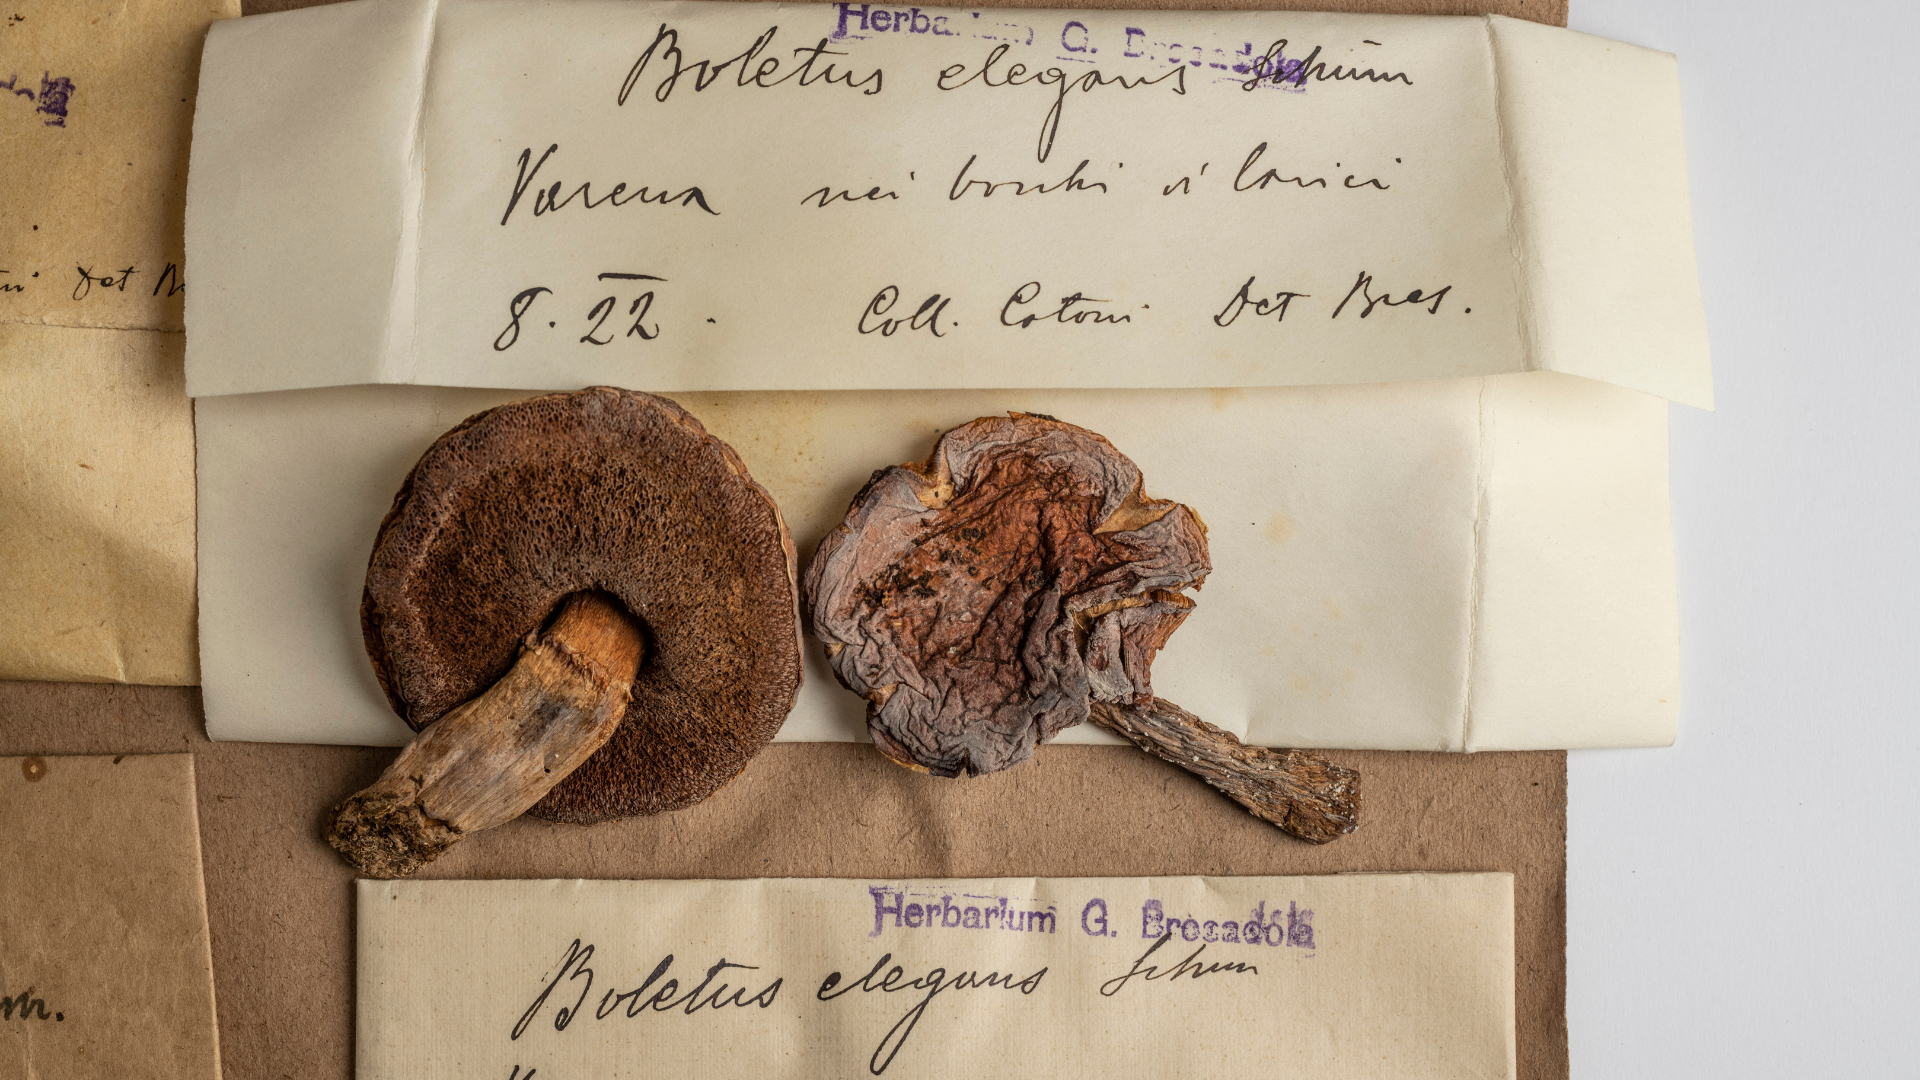 Herbarium G. Bresadola
Boletus elegans Schum
Varena nei boschi di larici
8. 22. Coll. Catoni Det Bres.
Det
Herbarium G. Bresadola
Boletus elegans Schum